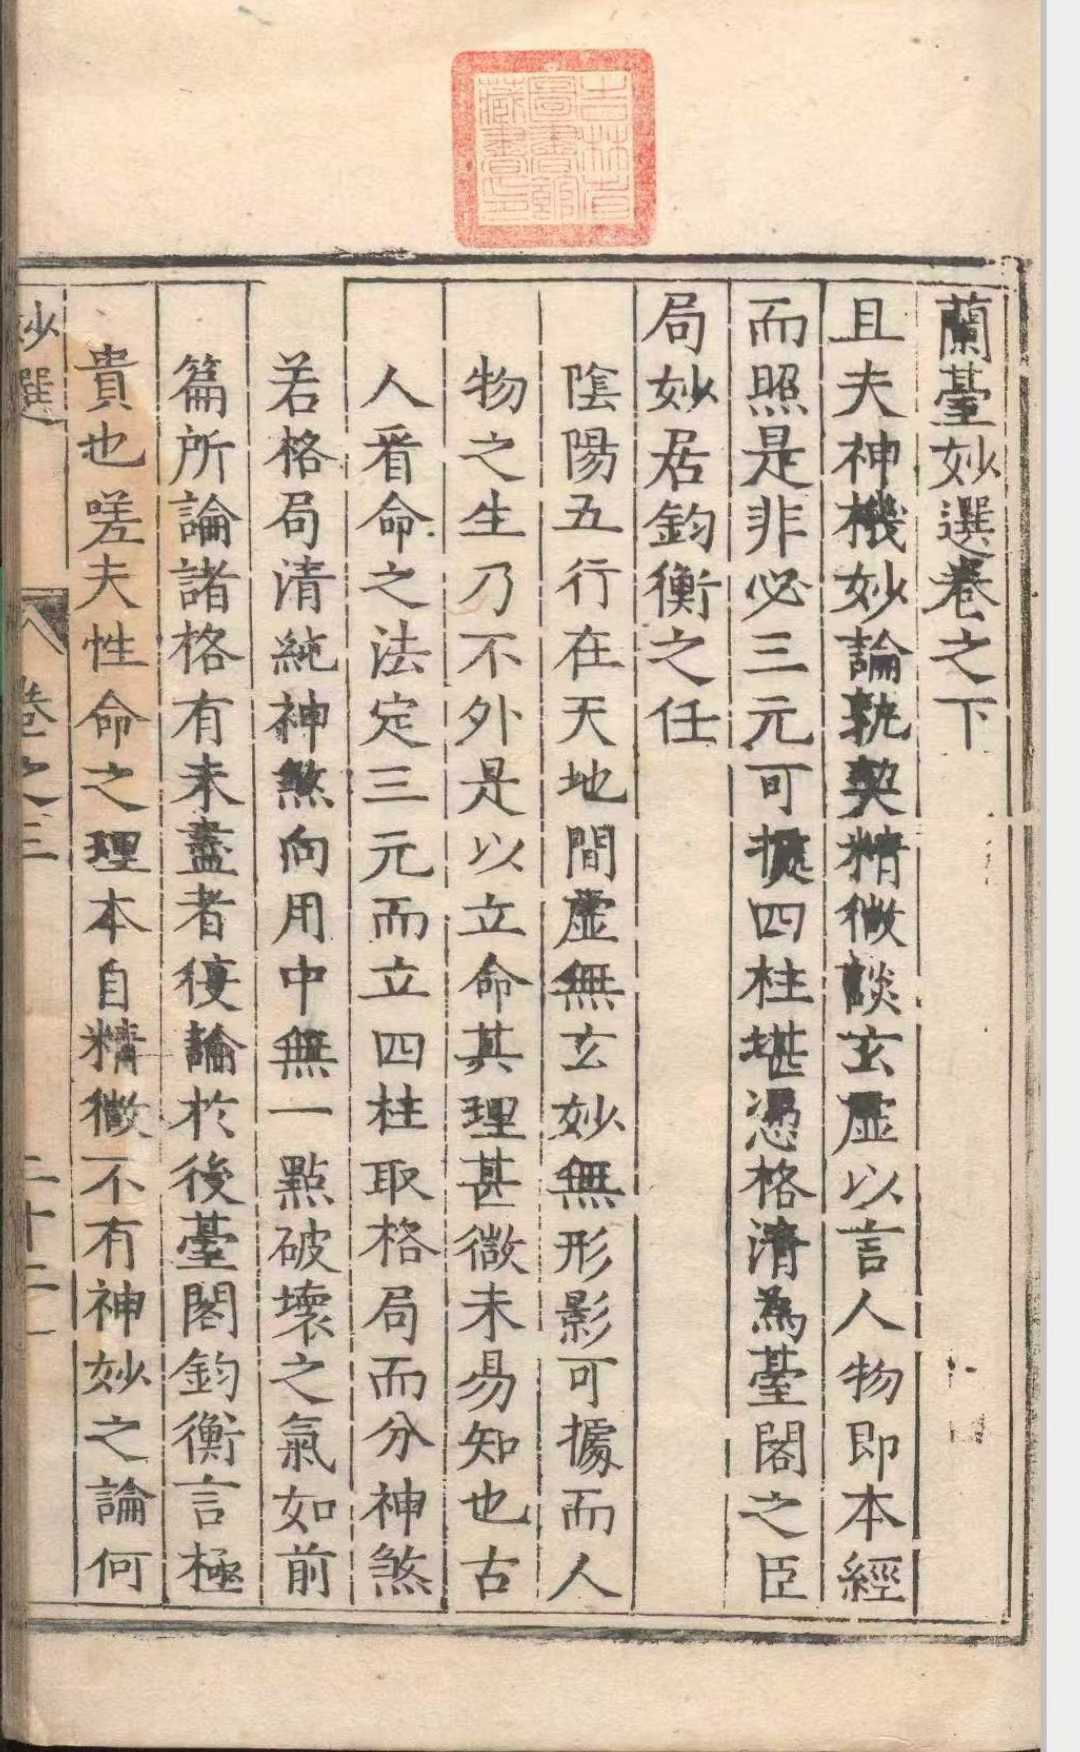 吉林省
圖書館
藏書印
蘭臺妙選卷之下
且夫神機妙論執契精微談玄虛以言人物即本經
而照是非必三元可據四柱堪憑格清為臺閣之臣
局妙居鈞衡之任
陰陽五行在天地間虛無玄妙無形影可據而人
物之生乃不外是以立命其理甚微未易知也古
人看命之法定三元而立四柱取格局而分神煞
若格局清純神煞向用中無一點破壞之氣如前
篇所論諸格有未盡者復論於後臺閣鈞衡言極
貴也嗟夫性命之理本自精微不有神妙之論何
妙選 卷之三 二十二